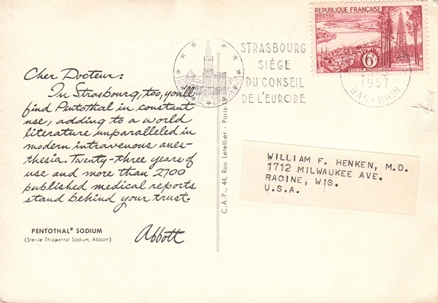 Cher Docteur:
In Strasbourg, too, you'll
find Pentothal in constant
use, adding to a world
literature unparalleled in
modern intravenous anes-
thesia. Twenty-three years of
use and more than 2700
published medical reports
stand behind your trust.
Abbott
PENTOTHAL® SODIUM
(Sterile Thiopental Sodium, Abbott)
C.A.P., 44, Rue Letellier - Paris
STRASBOURG
SIÈGE
DU CONSEIL
DE L'EUROPE
REPUBLIQUE FRANÇAISE
POSTES
6F
1957
BAS-RHIN
WILLIAM F. HENKEN, M.D.
1712 MILWAUKEE AVE.
RACINE, WIS.
U.S.A.